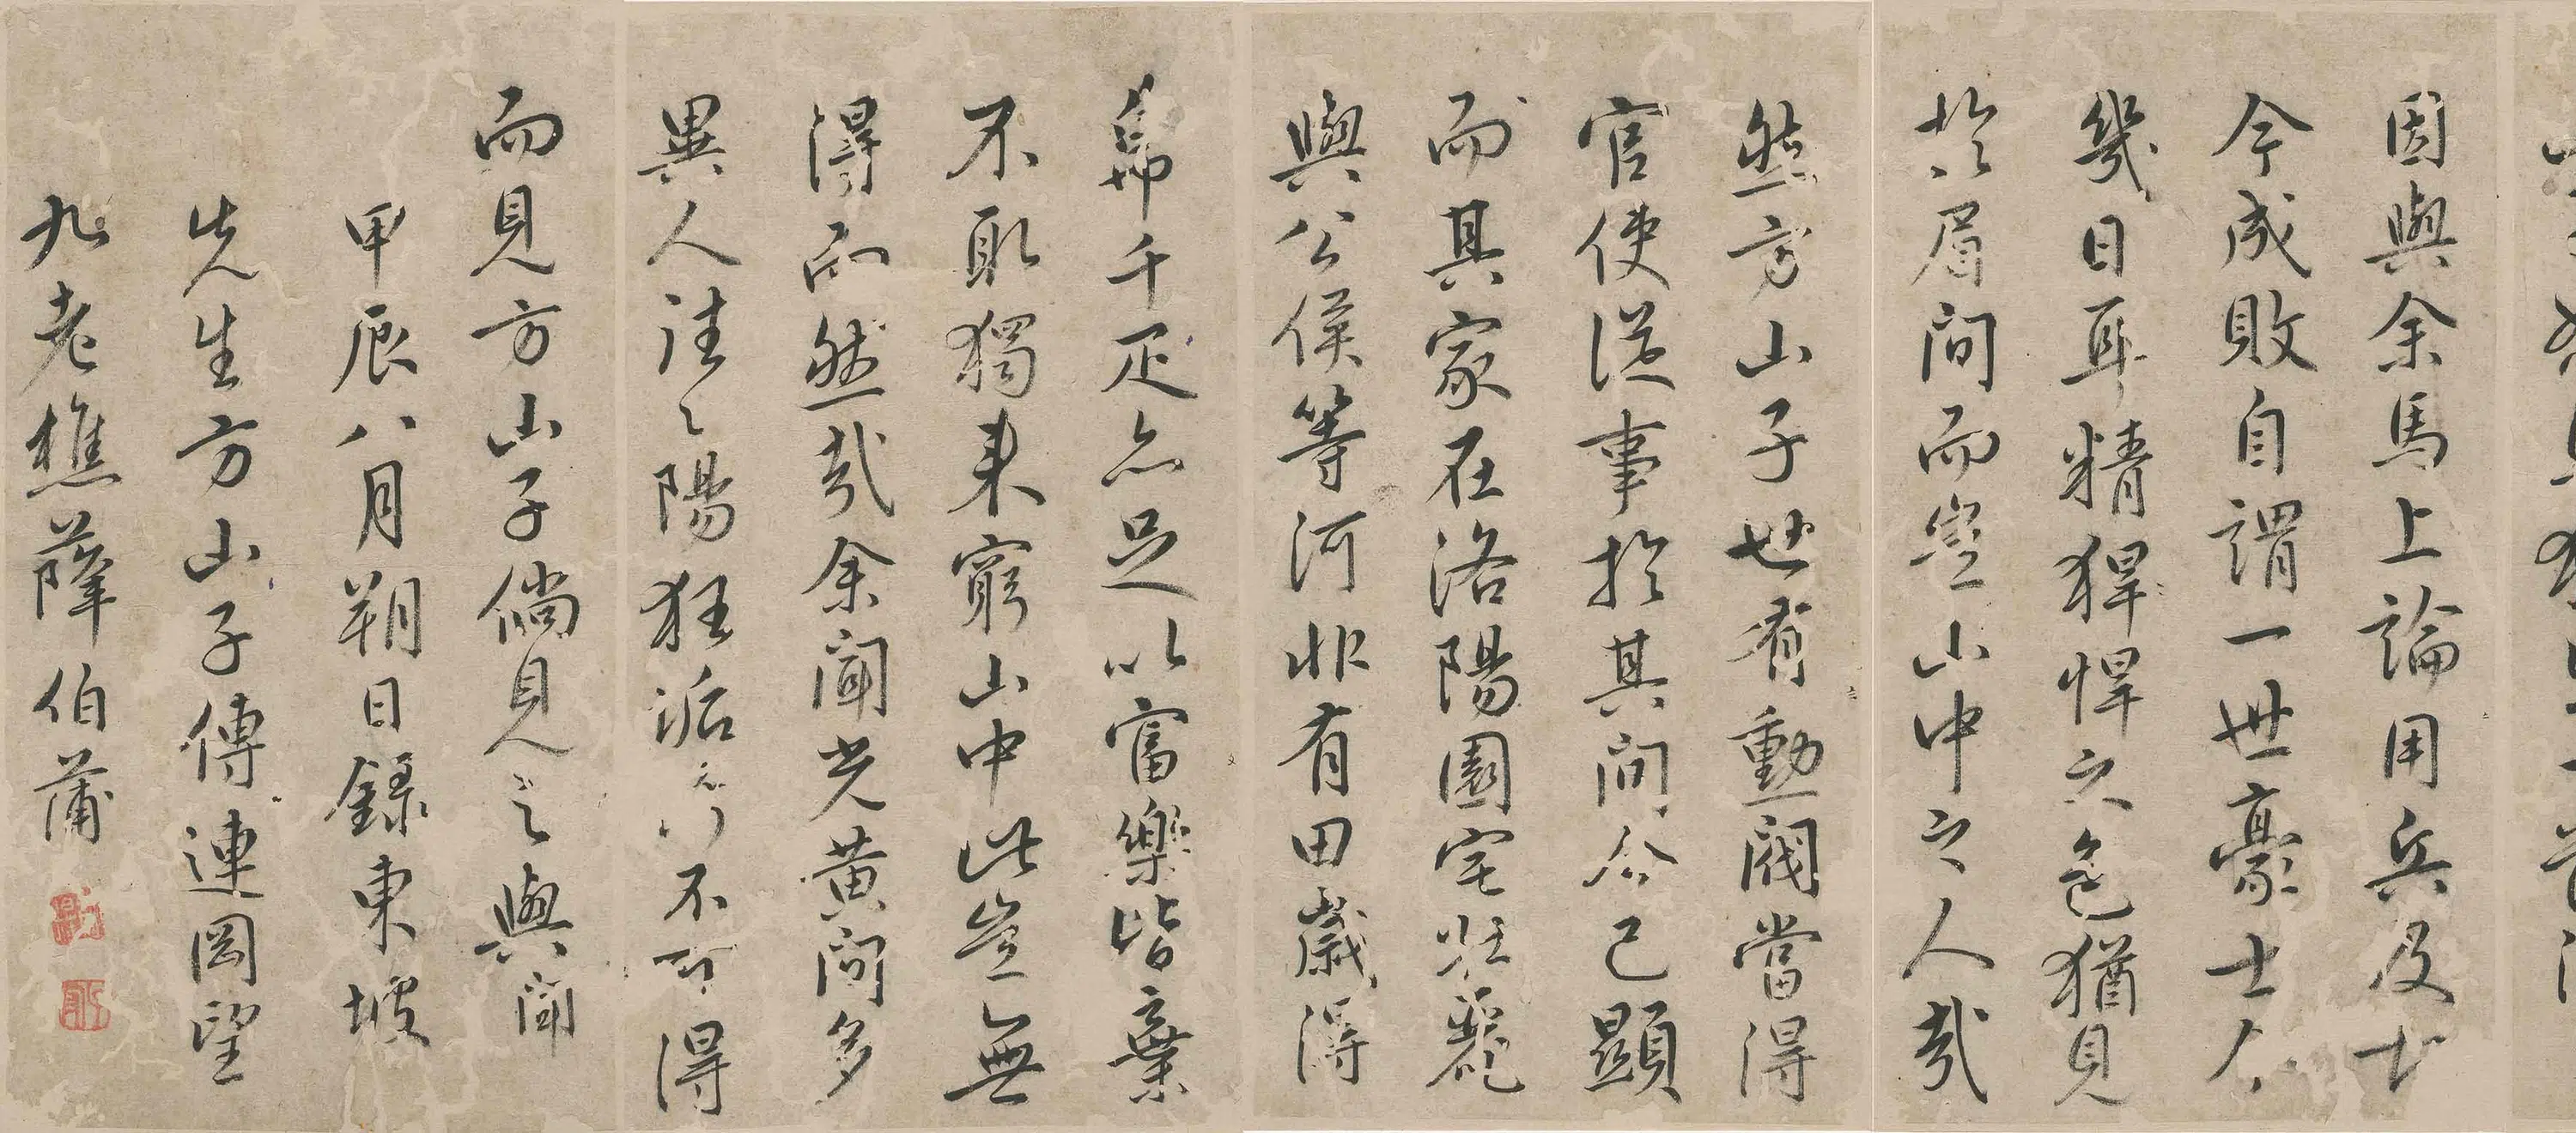 因與余馬上論用兵及古
今成敗自謂一世豪士今
幾日耳精猂悍之色猶見
於眉間而豈山中之人哉
然方山子世有勳閥當得
官使從事於其間今已顯
而其家在洛陽園宅壯麗
與公侯等河北有田歲得
帛千疋亦足以富樂皆棄
不取獨來窮山中此豈無
得而然哉余聞光黃間多
異人往々陽狂垢污不可得
而見方山子倘見之與聞
甲辰八月朔日錄東坡
先生方山子傳連岡望
九老樵伯蒲